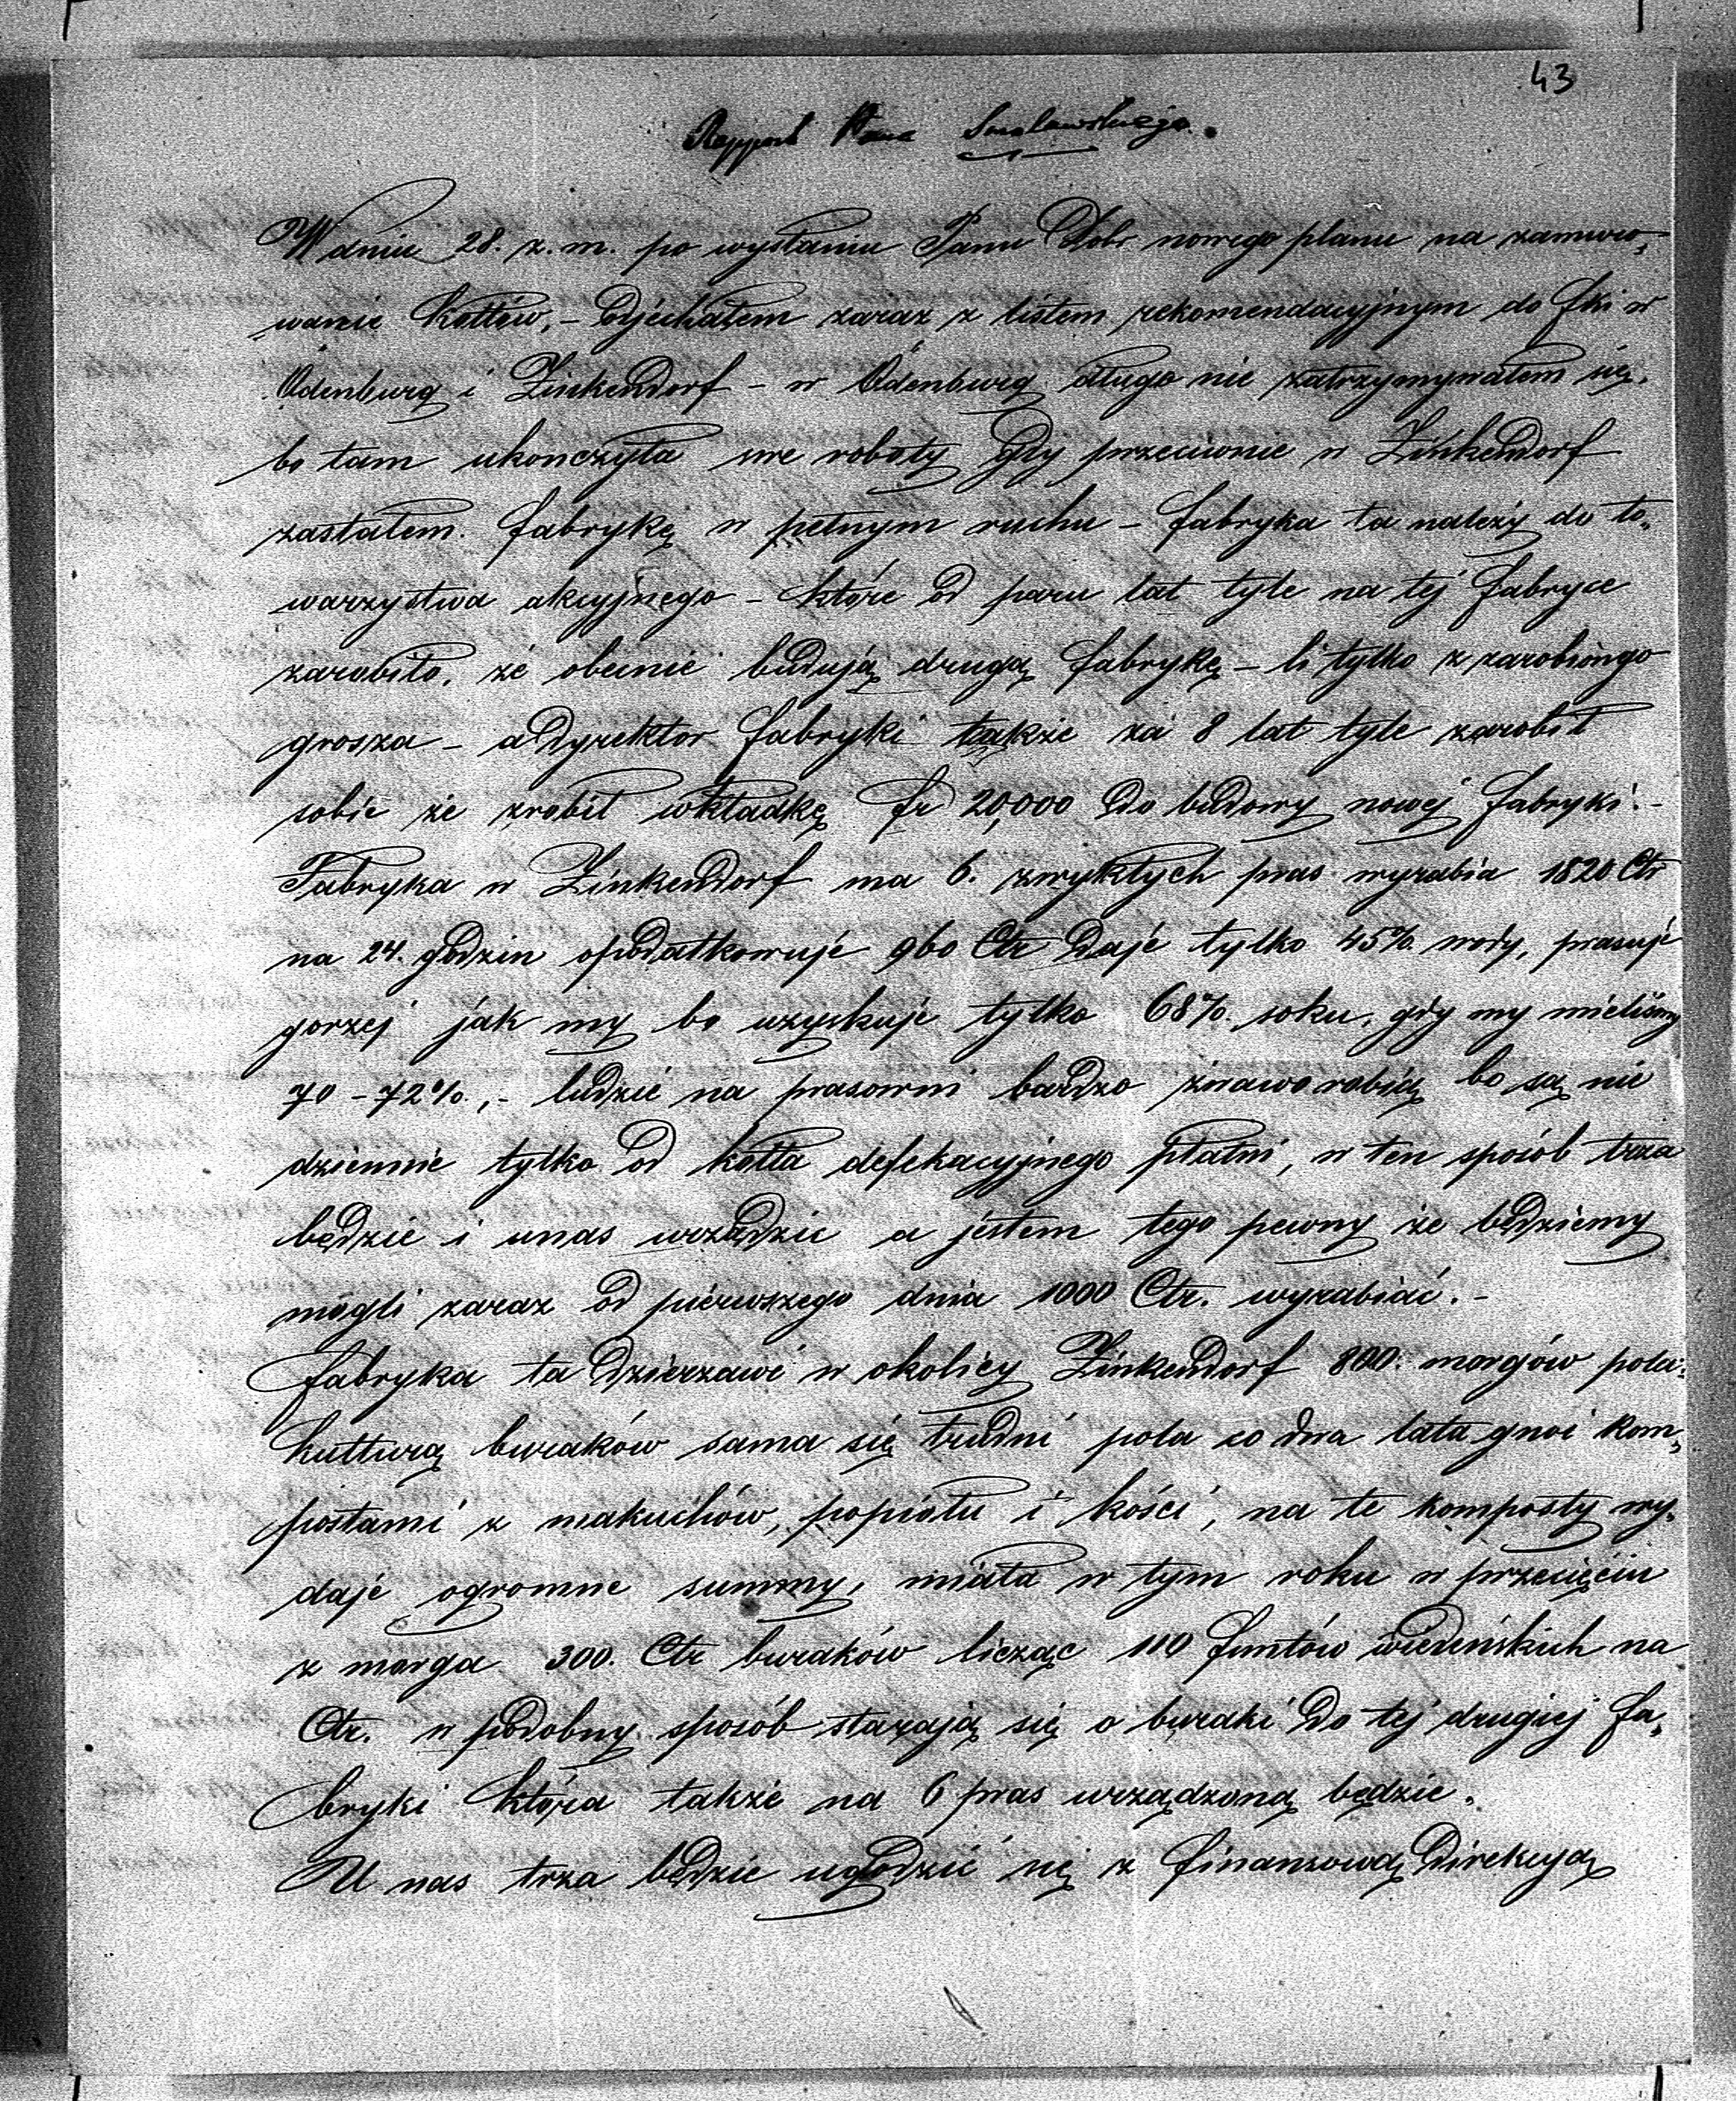 43
Rapport Pana Smolawskiego.
W dniu 28. z. m. po wysłaniu Panu Dobr. nowego planu na zamuro„
wanie kotłów, – odjechałem zaraz z listem rekomendacyjnym do fki w
Ödenburg i Zinkendorf – w Ödenburg długo nie zatrzymywałem się,
bo tam ukonczyła swe roboty gdy przeciwnie w Zinkendorf
zastałem fabrykę w pełnym ruchu – fabryka ta należy do to„
warzystwa akcyjnego – które od paru lat tyle na tej fabryce
zarobiło, że obecnie budują drugą fabrykę – li tylko z zarobiongo
grosza – a Dyrektor fabryki także za 8 lat tyle zarobił
sobie że zrobił wkładkę fr 20,000 do budowy nowej fabryki. –
Fabryka w Zinkendorf ma 6. zwykłych pras wyrabia 1820 Ctr
na 24. godzin opodatkowuje 960 Ctr Daje tylko 45% wody, prasuje
gorzej jak my bo uzyskuje tylko 68% soku, gdy my mieliśmy
70 – 72%, – ludzie na prasowni bardzo żwawo robią bo są nie
dziennie tylko od kotła defekacyjnego płatni, w ten sposób trza
będzie i unas urządzic a jestem tego pewny że będziemy
mógli zaraz od pierwszego dnia 1000 Ctr. wyrabiać. –
fabryka ta Dzierzawi w okolicy Zinkendorf 800. morgów pola
kulturą buraków sama się trudni pola co dwa lata gnoi kom„
postami z makuchów, popiołu i kości, na te komposty wy„
daje ogromne summy, miała w tym roku w przecięciu
z morga 300. Ctr buraków licząc 110 funtów wiedeńskich na
Ctr. w podobny sposób starają się o buraki Do tej drugiej fa„
bryki która także na 6 pras urządzoną będzie.
U nas trza będzie ugodzić się z finanzową Direkcyą